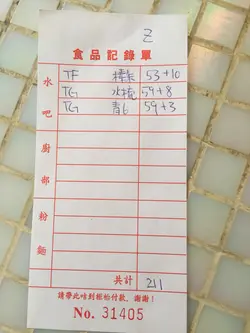 Z
食品記錄單
水吧廚部粉麵
TF 53+10
TG 59+8
TG 59+3
共計 211
請帶此咭到賬枱付款，謝謝！
No. 31405